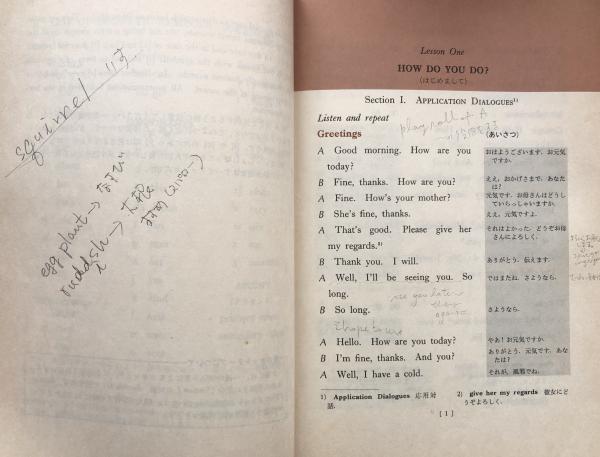 squirrel リス
egg plant → なすび
ruddish → 大根
Lesson One
HOW DO YOU DO?
(はじめまして)
Section I. APPLICATION DIALOGUES¹⁾
Listen and repeat
play roll of A
Greetings
(あいさつ)
A Good morning. How are you today?
おはようございます. お元気ですか.
B Fine, thanks. How are you?
ええ, おかげさまで. あなたは?
A Fine. How's your mother?
元気です. お母さんはどうしていらっしゃいますか.
B She's fine, thanks.
ええ, 元気ですよ.
A That's good. Please give her my regards.²⁾
それはよかった. どうぞお母さんによろしく.
B Thank you. I will.
ありがとう. 伝えます.
A Well, I'll be seeing you. So long.
ではまたね. さようなら.
see you later
again
B So long.
さようなら.
I hope to see
A Hello. How are you today?
やあ! お元気ですか.
B I'm fine, thanks. And you?
ありがとう. 元気です. あなたは?
A Well, I have a cold.
それが, 風邪でね.
1) Application Dialogues 応用対話.
2) give her my regards 彼女にどうぞよろしく.
[ 1 ]